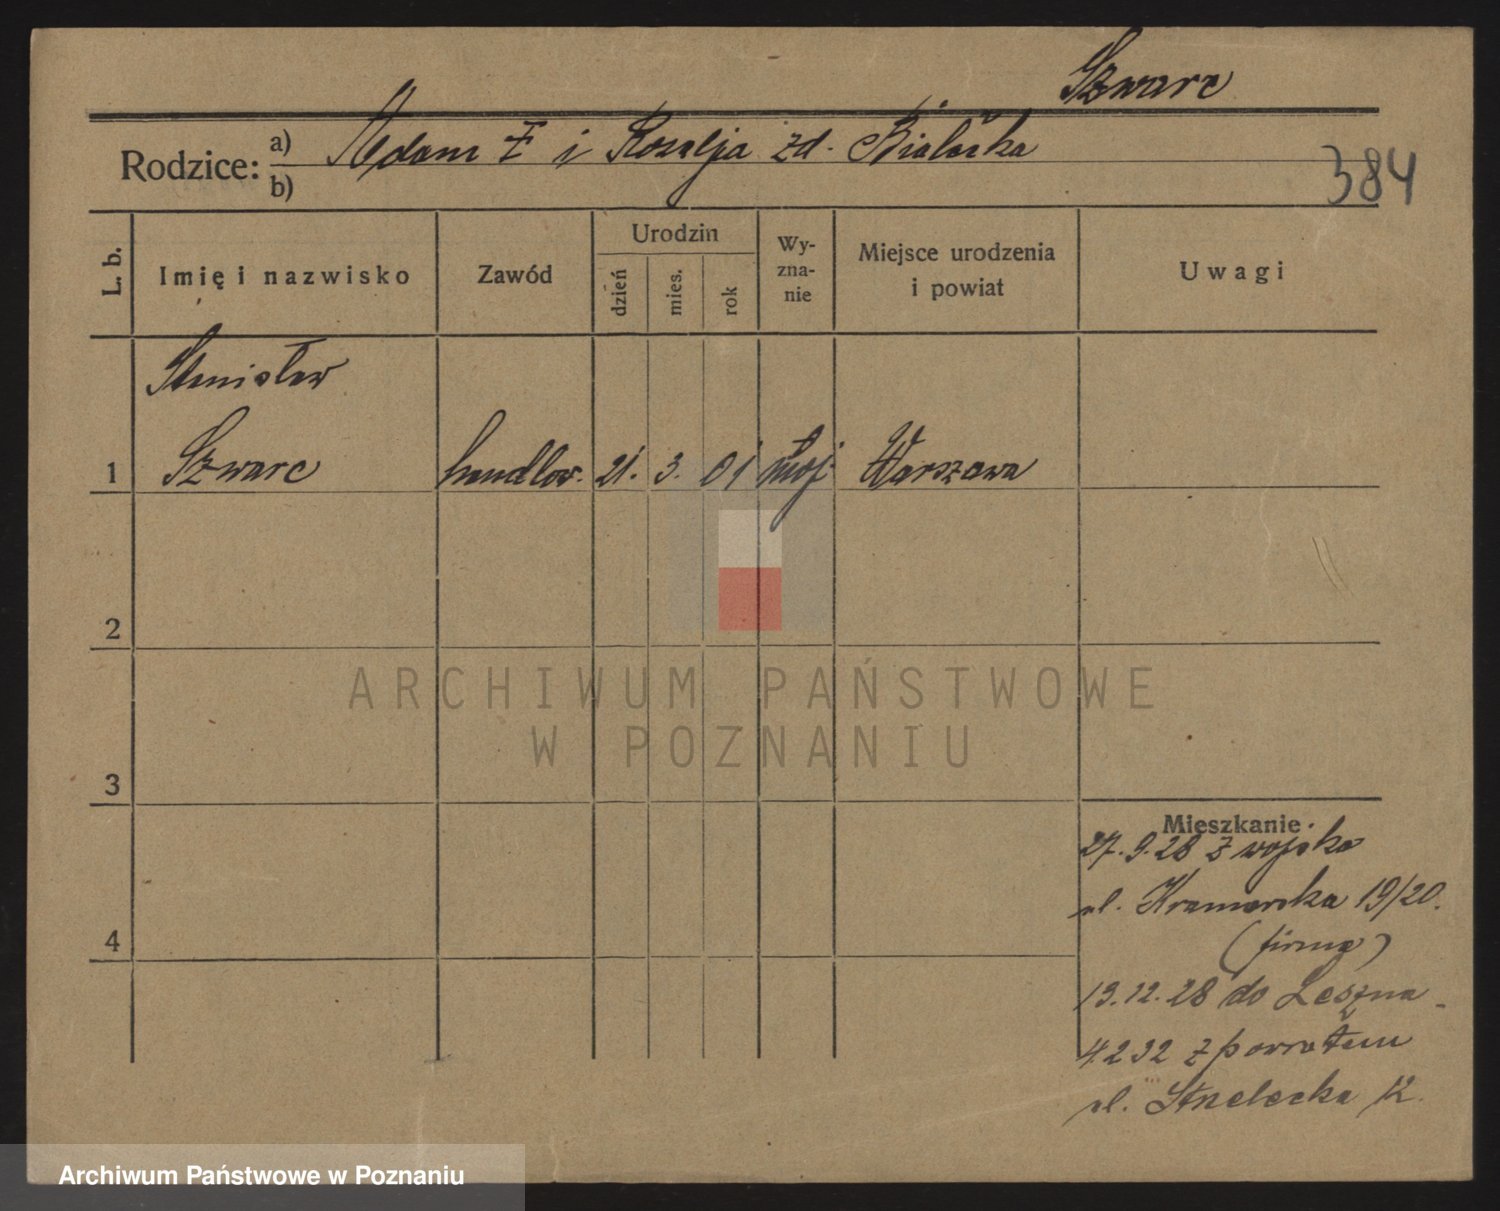 Szwarc
Rodzice: a) Adam Ż i Rozalja zd. Bialaska
b)
384
L. b.
Imię i nazwisko
Zawód
Urodzin
dzień
mies.
rok
Wy-
zna-
nie
Miejsce urodzenia
i powiat
Uwagi
Stanisław
1 Szwarc handlow. 21. 3. 01 mojż Warszawa
2
3
4
Mieszkanie.
27.9.28 z wojska
ul. Kramarska 19/20.
(firma)
13.12.28 do Leszna -
4 2 32 z powrotem
ul. Strzelecka 12.
ARCHIWUM PAŃSTWOWE
W POZNANIU
Archiwum Państwowe w Poznaniu